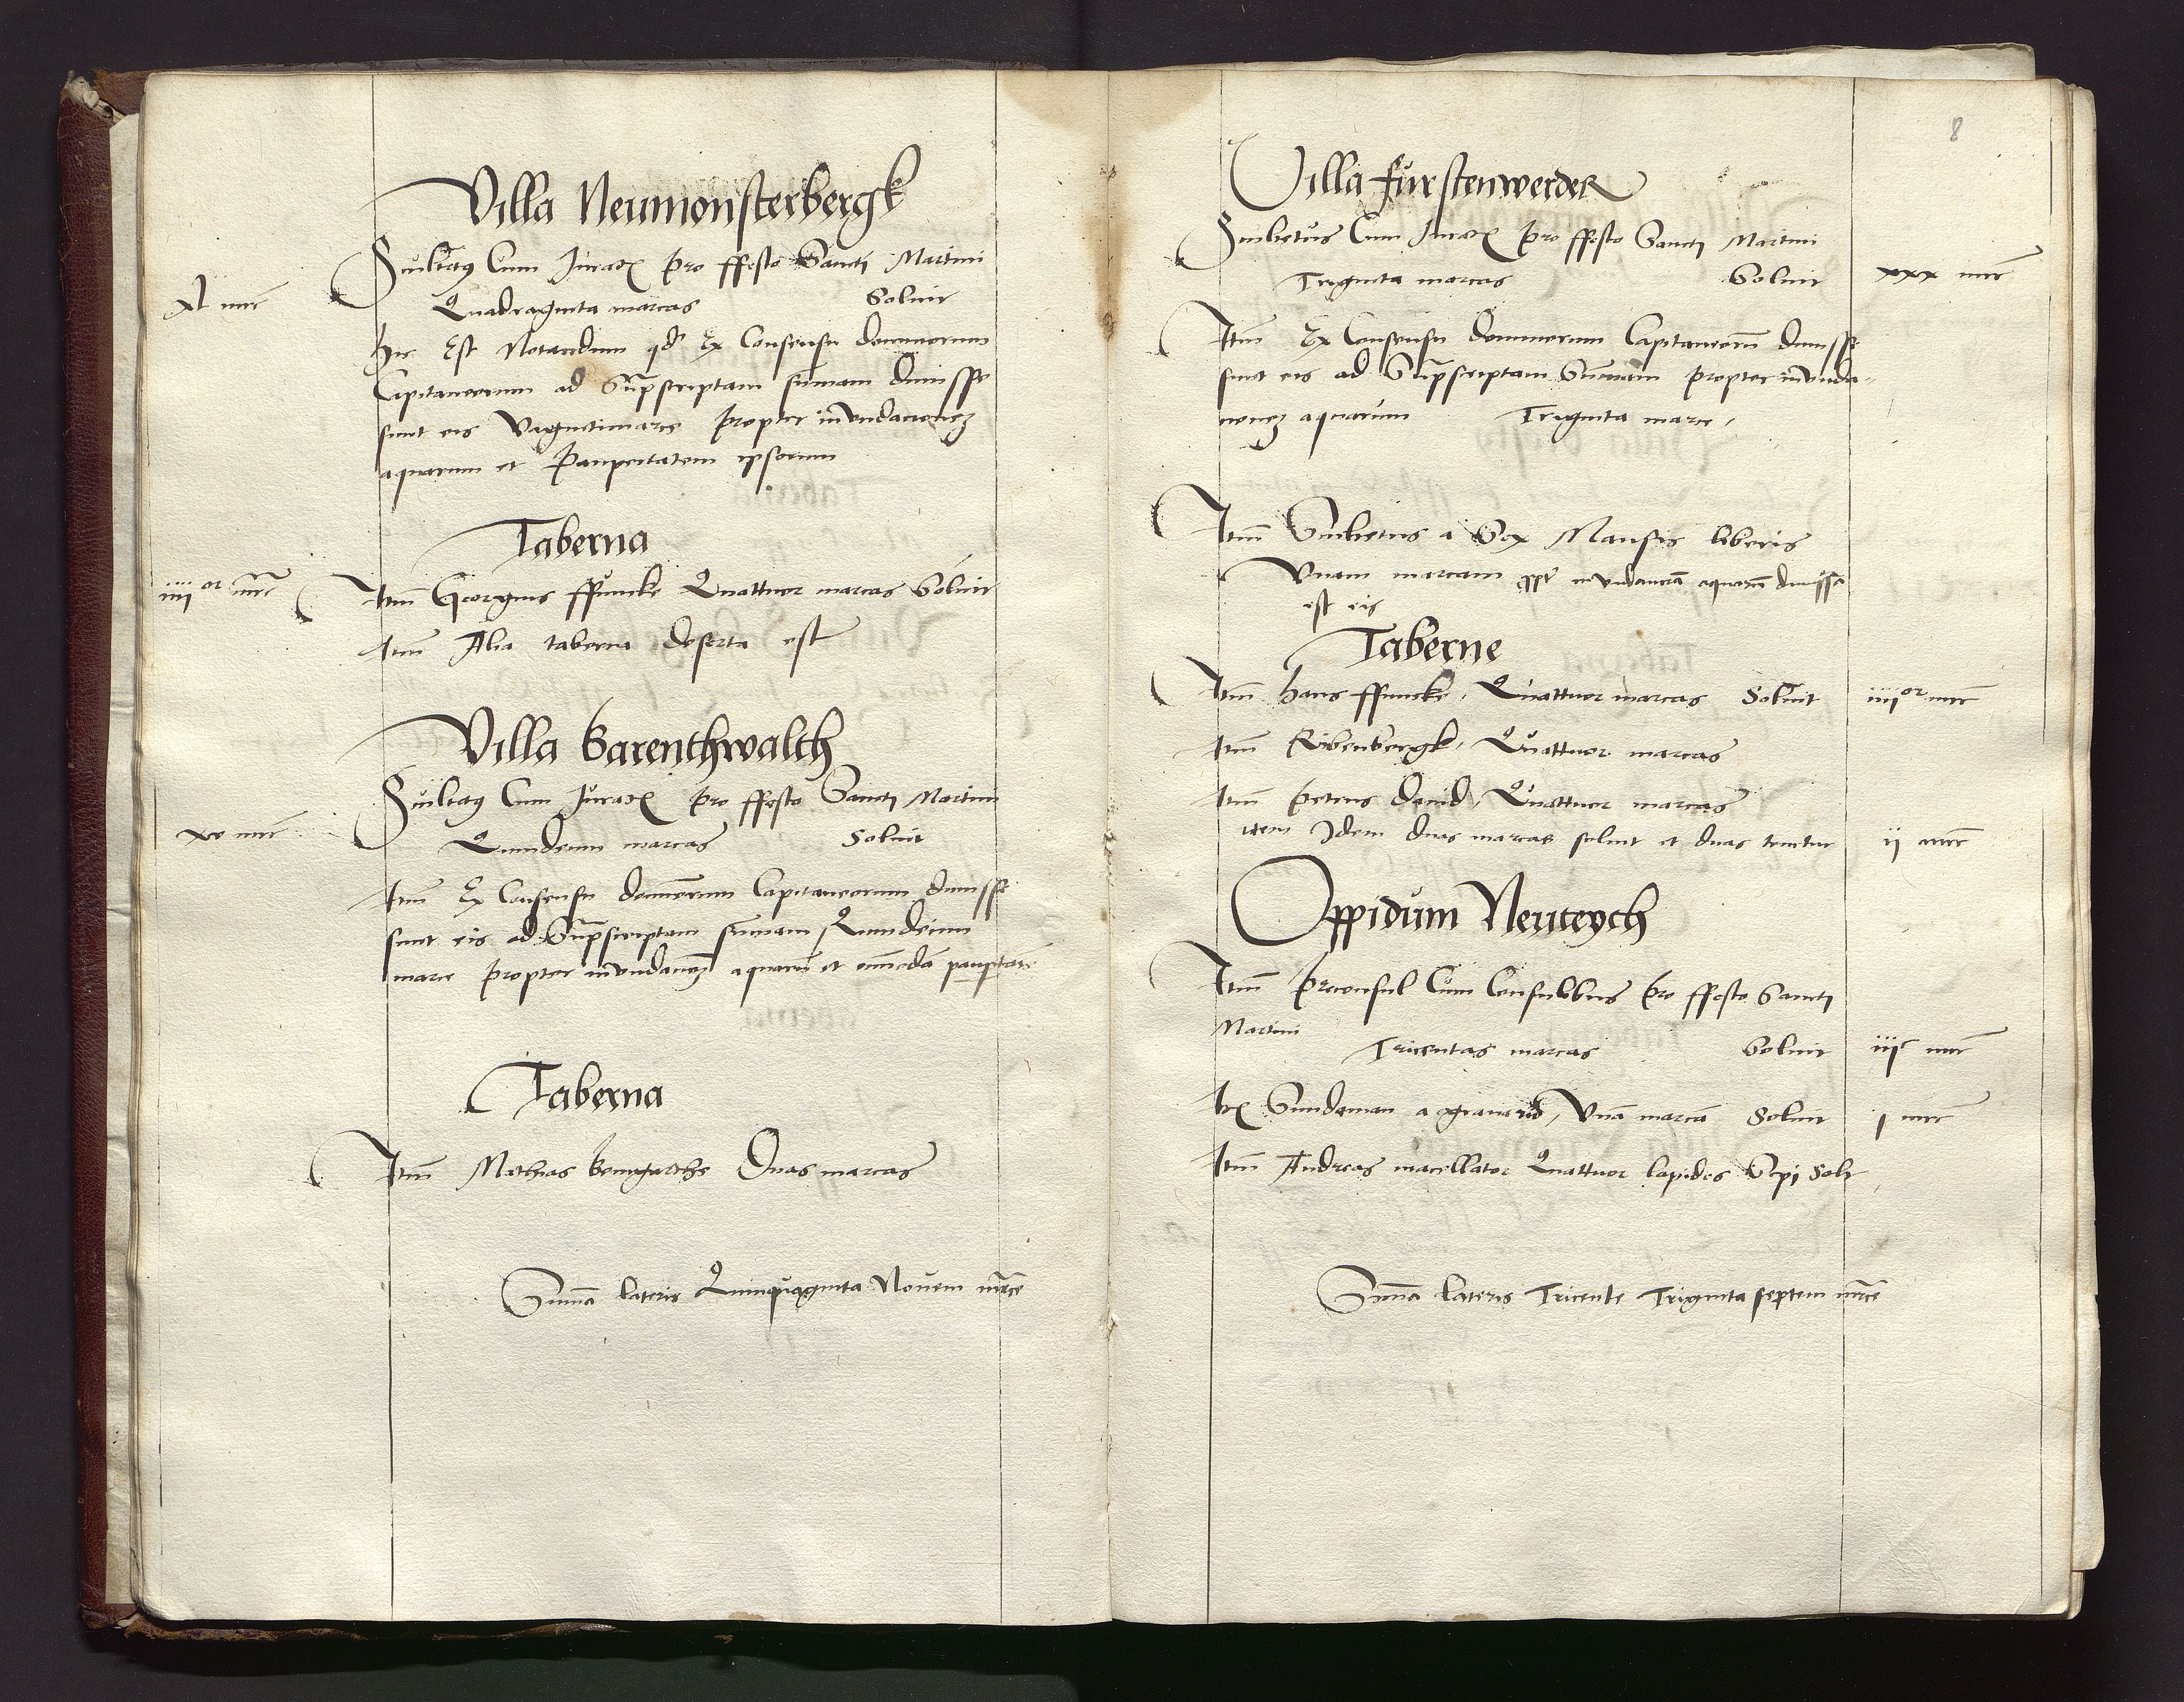 Villa Neumonsterbergk
Scultetus Cum Jurat pro ffesto Sancti Martini
xl mrc
Quadraginta marcas Soluit
Hic Est Notandum qd Ex Consensu dominorum
Capitaneorum ad Suprascriptam summam dimisse
sunt eis Vigintimarce propter inundacionem
aquarum et Paupertatem ipsorum
Taberna
iiiior mrc
Item Georgius ffuncke Quattuor marcas Soluit
Item Alia taberna deserta est
Villa Barenthwalth
Scultetus Cum Jurat pro ffesto Sancti Martini
xv mrc
Quindecim marcas Soluit
Item Ex Consensu dominorum Capitaneorum dimisse
sunt eis ad Suprascriptam summam Quindecim
marce propter inundacionem aquarum et
Taberna
Item Mathias Duas marcas
Summa lateris Quinquaginta Novem mrce
8
Villa furstenwerder
Scultetus Cum Jurat pro ffesto Sancti Martini
Triginta marcas Soluit xxx mrc
Item Ex Consensu dominorum Capitaneorum dimisse
sunt eis ad Suprascriptam Summam propter inunda-
cionem aquarum Triginta marce
Item Scultetus a Sex Mansis liberis
Vnam marcam ppter inundacionem aquarum dimissa
est eis
Taberne
Item Hans ffuncke Quattuor marcas Soluit iiiior mrc
Item Ribenbergk Quattuor marcas
Item Petrus David Quattuor marcas
item Idem duas marcas soluit et duas tenetur ij mrc
Oppidum Neuteych
Item Preconsul Cum Consulibus pro ffesto Sancti
Martini
Tricentas marcas Soluit iijc mrc
Sundaman a granario Vnam marcam Soluit j mrc
Item Andreas macellator Quattuor lapides Cepi Solt
Summa lateris Tricente Triginta septem mrce